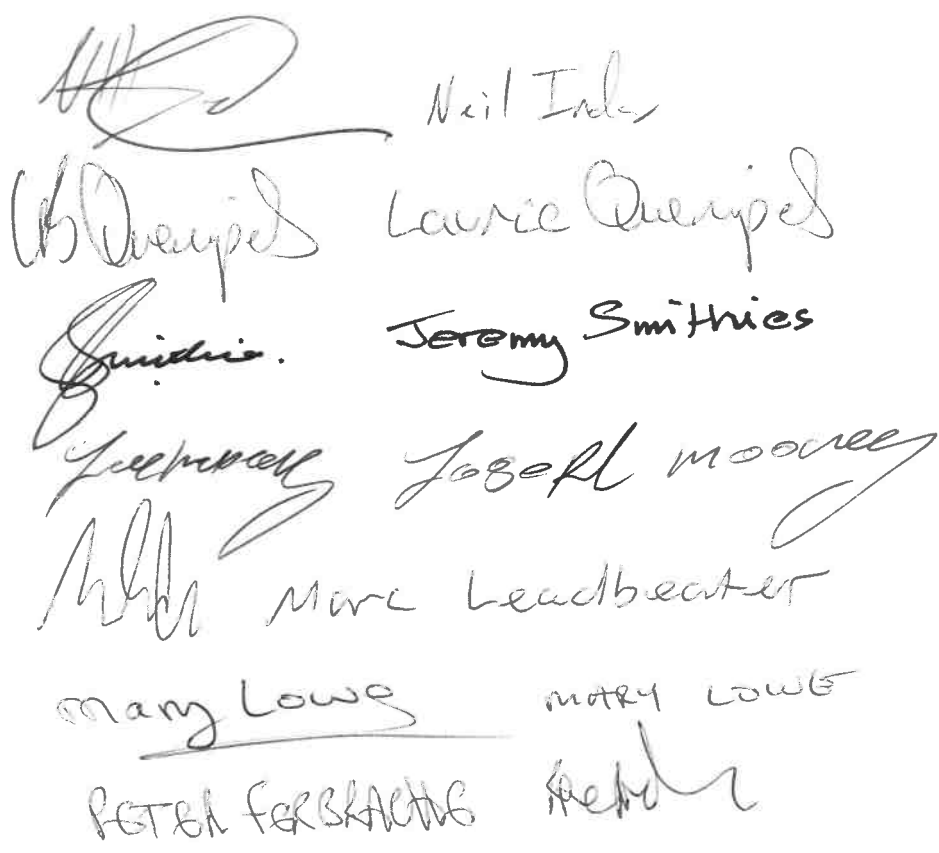 Neil Inder
LB Queripel Laurie Queripel
Smithies. Jeremy Smithies
Joseph Mooney
Marc Leadbeater
Mary Lowe MARY LOWE
PETER FERBRACHE